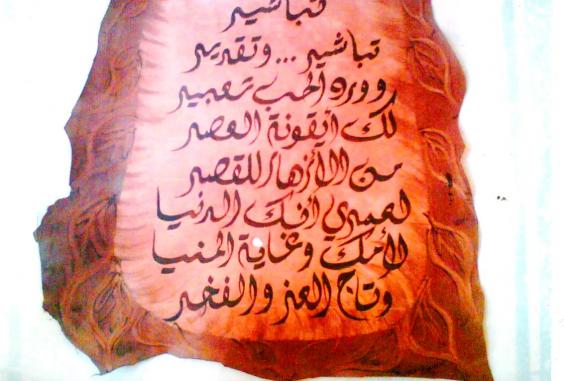 تباشير
تباشير ... وتقدير
وورد الحب تعبير
لك أيقونة العصر
من الأزهار للقصر
لعمري أنك الدنيا
لأمك وغاية المنيا
وتاج العز والفخر